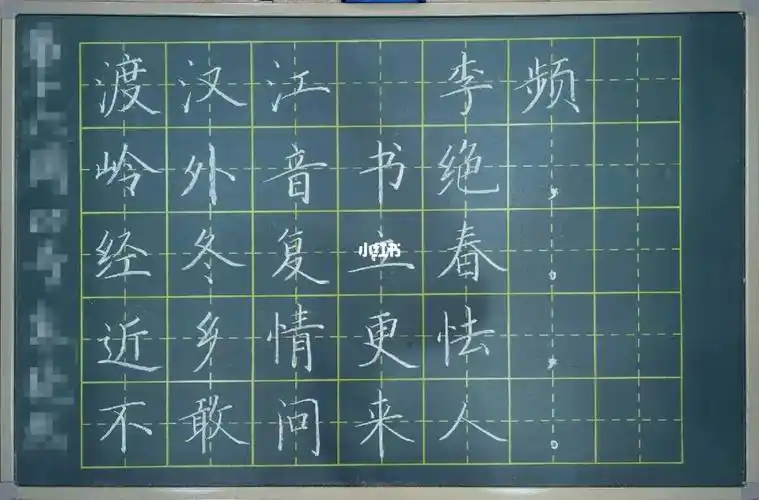 渡汉江 李频
岭外音书绝，
经冬复立春。
近乡情更怯，
不敢问来人。
小红书